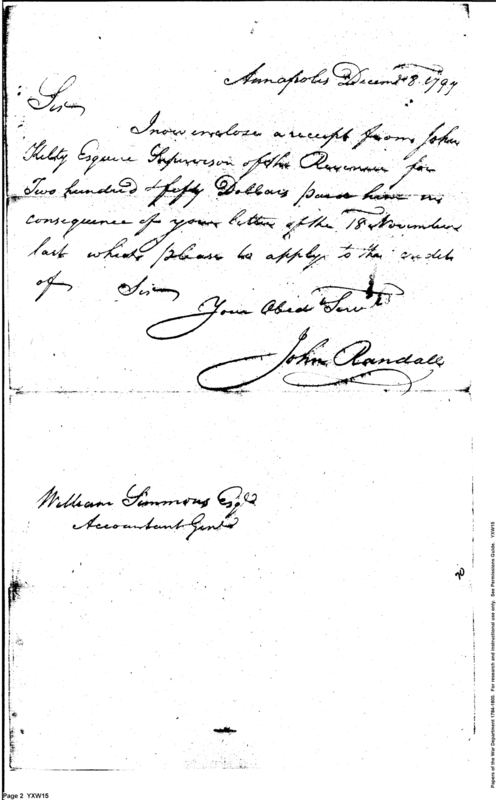 Annapolis Decem 8. 1797
Sir
I now enclose a receipt from John
Kilty Esquire Supervisor of the Revenue for
Two hundred & fifty Dollars paid him in
consequence of your letter of the 18 November
last which please to apply to the credit
of Sir
Your Obedt Servt
John Randall
William Simmons Esqr
Accountant Genl
70
Page 2 YXW15
Papers of the War Department 1784-1800. For research and instructional use only. See Permissions Guide. YXW15